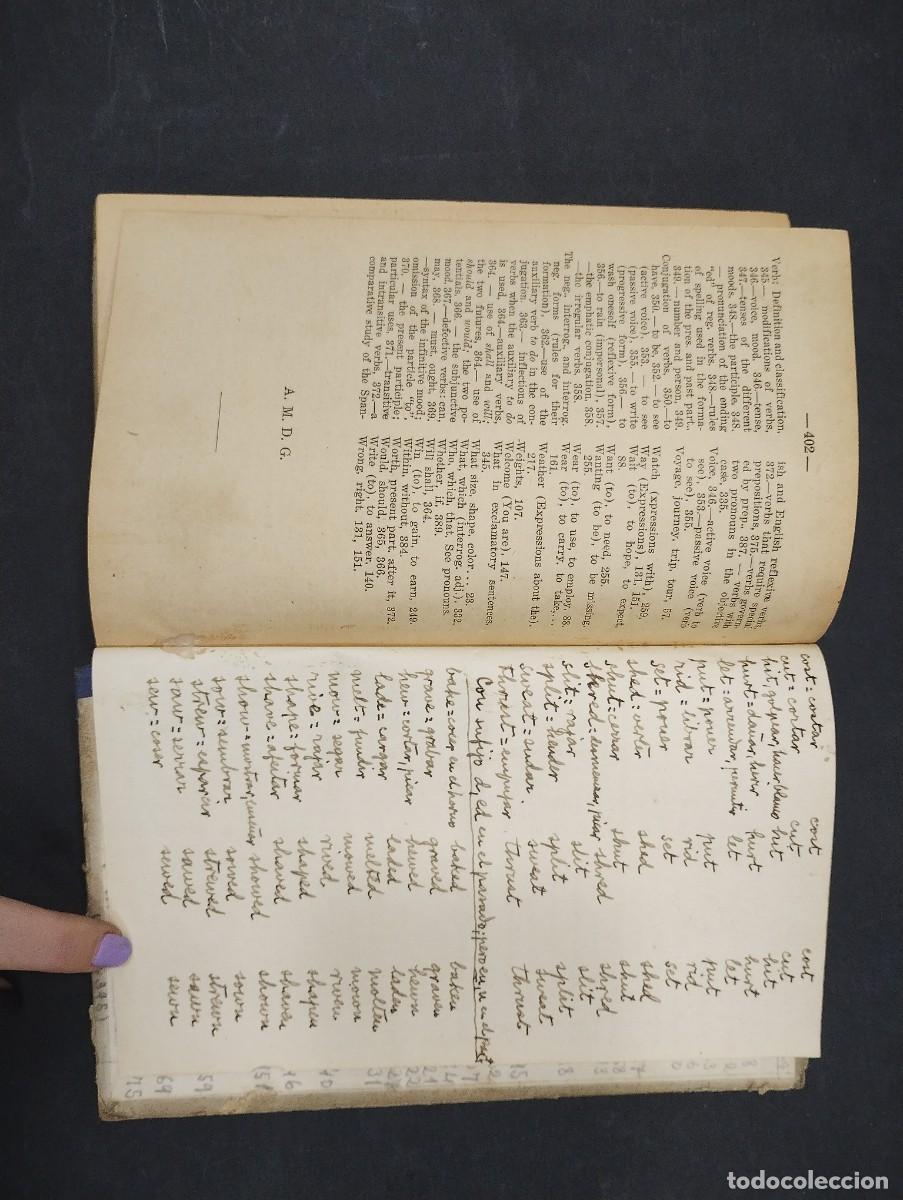 — 402 —
Verb: Definition and classification,
345.— modifications of verbs,
346.—voice, mood, 346.—tense,
347.—tenses of the different
moods, 348.—the participle, 348.
— pronunciation of the ending
"ed" of reg. verbs, 348.—rules
of spelling used in the forma-
tion of the pres. and past part.,
349. — number and person, 349.
Conjugation of verbs, 350.—to
have, 350.—to be, 352.—to see
(active voice), 353. — to see
(passive voice), 355.—to write
(progressive form), 356.— to
wash oneself (reflexive form),
356.—to rain (impersonal), 357.
—the emphatic conjugation, 358.
—the irregular verbs, 358.
The neg., interrog., and interrog.
neg. forms (rules for their
formation), 362.—use of the
auxiliary verb to go in the con-
jugation, 363.— inflections of
verbs when the auxiliary to do
is used, 364.—auxiliary verbs,
364. — use of shall and will;
the two futures, 364.— use of
should and would; the two po-
tentials, 366. — the subjunctive
mood, 367.—defective verbs: can,
may, 368. — must, ought, 369.
—syntax of the infinitive mood;
omission of the particle "to",
370. — the present participle;
particular uses, 371.—transitive
and intransitive verbs, 372.—a
comparative study of the Span-
ish and English reflexive verbs,
372.—verbs that require special
prepositions, 375.—verbs govern-
ed by prep., 387. — verbs with
two pronouns in the objective
case, 335.
Voice, 346.—active voice (verb to
see), 353.—passive voice (verb
to see), 355.
Voyage, journey, trip, tour, 57.
Watch (xpressions with), 259,
Way (Expressions), 131, 151.
Wait (to), to hope, to expect,
88.
Want (to), to need, 255.
Wanting (to be), to be missing,
255.
Wear (to), to use, to employ, 88.
Wear (to), to carry, to take,
161.
Weather (Expressions about the),
217.
Weights, 107.
Welcome (You are), 147.
What in exclamatory sentences,
345.
What size, shape, color... 23.
What, which (interrog. adj.), 332.
Who, which, that, See pronouns.
Whether, if, 389.
Will shall, 364.
Win (to), to gain, to earn, 249.
Within, without, 384.
Worth, present part. after it, 372.
Would, should, 365, 366.
Write (to), to answer, 140.
Wrong, right, 131, 151.
A. M. D. G.
cost = costar cost cost
cut = cortar cut cut
hit, golpear, hit hit
hurt = dañar, herir hurt hurt
let = arrendar, permitir let let
put = poner put put
rid = librar rid rid
set = poner set set
shed = verter shed shed
shut = cerrar shut shut
shred = shred shred
slit = rajar slit slit
split = hender split split
sweat = sudar. sweat sweat
thrust = empujar. thrust thrust
Con sufijo d, ed en el pasado; pero en n en el part
bake = cocer en el horno baked baken
grave = grabar graved graven
hew = cortar, picar hewed hewn
lade = cargar laded laden
melt = fundir melted molten
mow = segar mowed mown
rive = rajar rived riven
shape = formar shaped shapen
shave = afeitar shaved shaven
show = mostrar, enseñar showed shown
sow = sembrar sowed sown
strew = esparcir strewed strewn
saw = serrar sawed sawn
sew = coser sewed sewn
todocoleccion